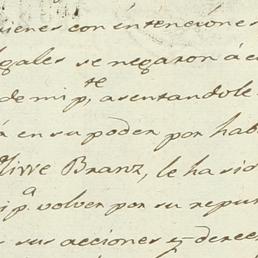 uienes con intenciones
gales se negaron á c
de mi p.te, asentandole
á en su poder por hab
Branz, le ha sid
p.a volver por su repu
s sus acciones y derec